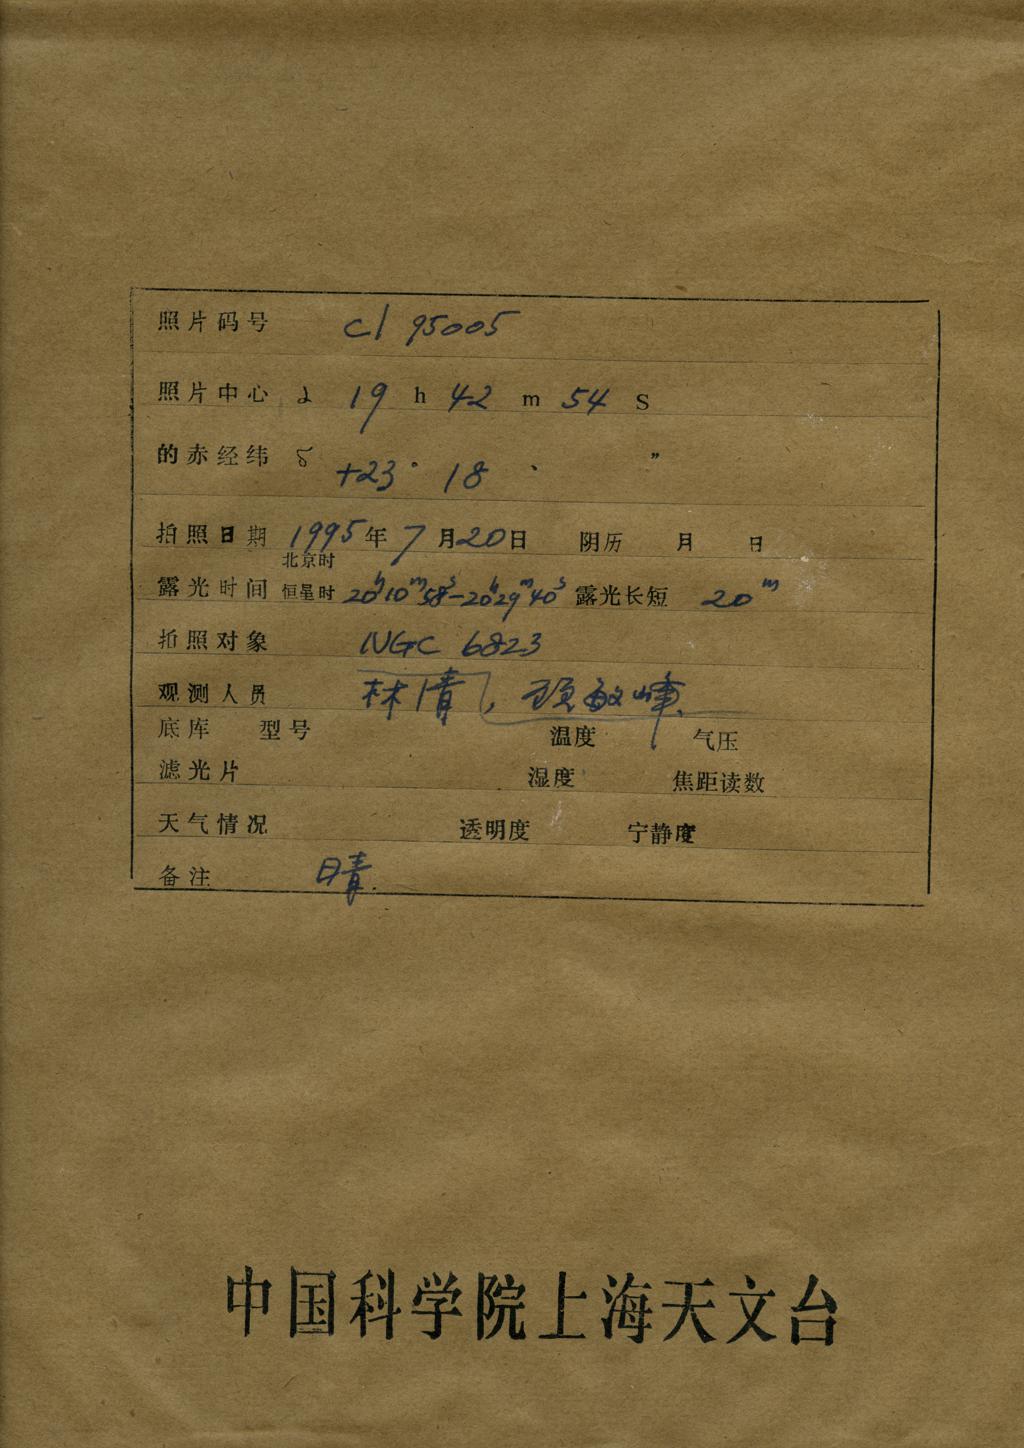 照片码号 cl 95005
照片中心 α 19 h 42 m 54 S
的赤经纬 δ +23° 18 ′ ″
拍照日期 1995年7月20日 阴历 月 日
北京时
露光时间 恒星时 20h10m58s-20h29m40s 露光长短 20m
拍照对象 NGC 6823
观测人员 林清, 敏峰
底库 型号 温度 气压
滤光片 湿度 焦距读数
天气情况 透明度 宁静度
备注 晴.
中国科学院上海天文台